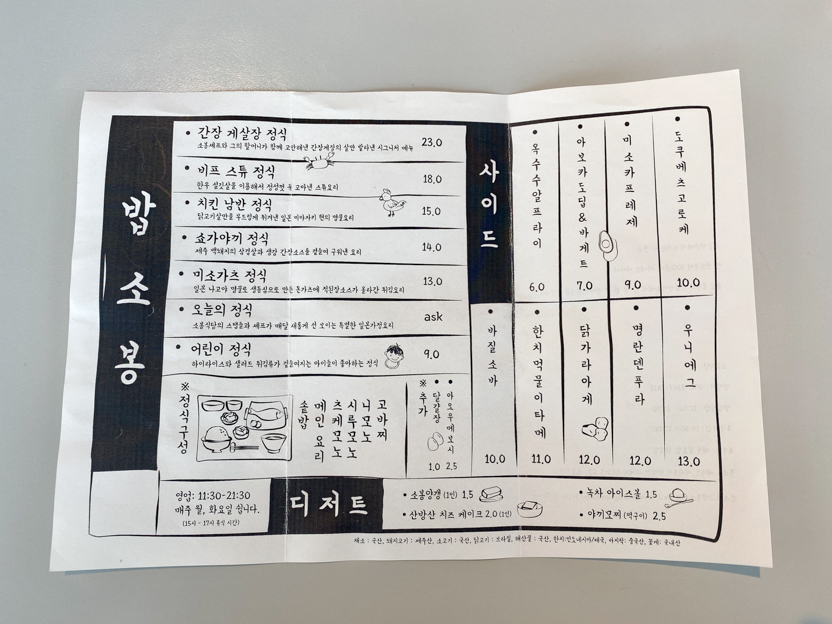 밥소봉
• 간장 게살장 정식 23.0
소봉셰프와 그의 할머니가 함께 고안해낸 간장게장의 살만 발라낸 시그니처 메뉴
• 비프 스튜 정식 18.0
한우 설깃살을 이용해서 정성껏 푹 고아낸 스튜요리
• 치킨 남반 정식 15.0
닭고기살만을 부드럽게 튀겨낸 일본 미야자키 현의 명물요리
• 쇼가야끼 정식 14.0
제주 백돼지의 삼겹살과 생강 간장소스를 곁들여 구워낸 요리
• 미소가츠 정식 13.0
일본 나고야 명물로 생등심으로 만든 돈가츠에 적된장소스가 올라간 튀김요리
• 오늘의 정식 ask
소봉식당의 스탭들과 셰프가 매달 새롭게 선 보이는 특별한 일본가정요리
• 어린이 정식 9.0
하이라이스와 샐러드 튀김류가 곁들여지는 아이들이 좋아하는 정식
※정식구성
솥밥
메인 요리
츠케모노
시루모노
니모노
고바찌
※추가
• 달걀장 1.0
• 아오우메보시 2.5
사이드
• 옥수수알프라이 6.0
• 아보카도딥&바게트 7.0
• 미소카프레제 9.0
• 도쿠베츠고로케 10.0
• 바질소바 10.0
• 한치먹물이타메 11.0
• 닭가라아게 12.0
• 명란덴푸라 12.0
• 우니에그 13.0
영업: 11:30-21:30
매주 월, 화요일 쉽니다.
(15시 - 17시 휴식 시간)
디저트
• 소봉양갱 (1인) 1.5
• 산방산 치즈 케이크 2.0 (1인)
• 녹차 아이스볼 1.5
• 야끼모찌 (떡구이) 2.5
채소 : 국산, 돼지고기 : 제주산, 소고기 : 국산, 닭고기 : 브라질, 해산물 : 국산, 한치:인도네시아/태국, 바지락: 중국산, 꽃게: 국내산